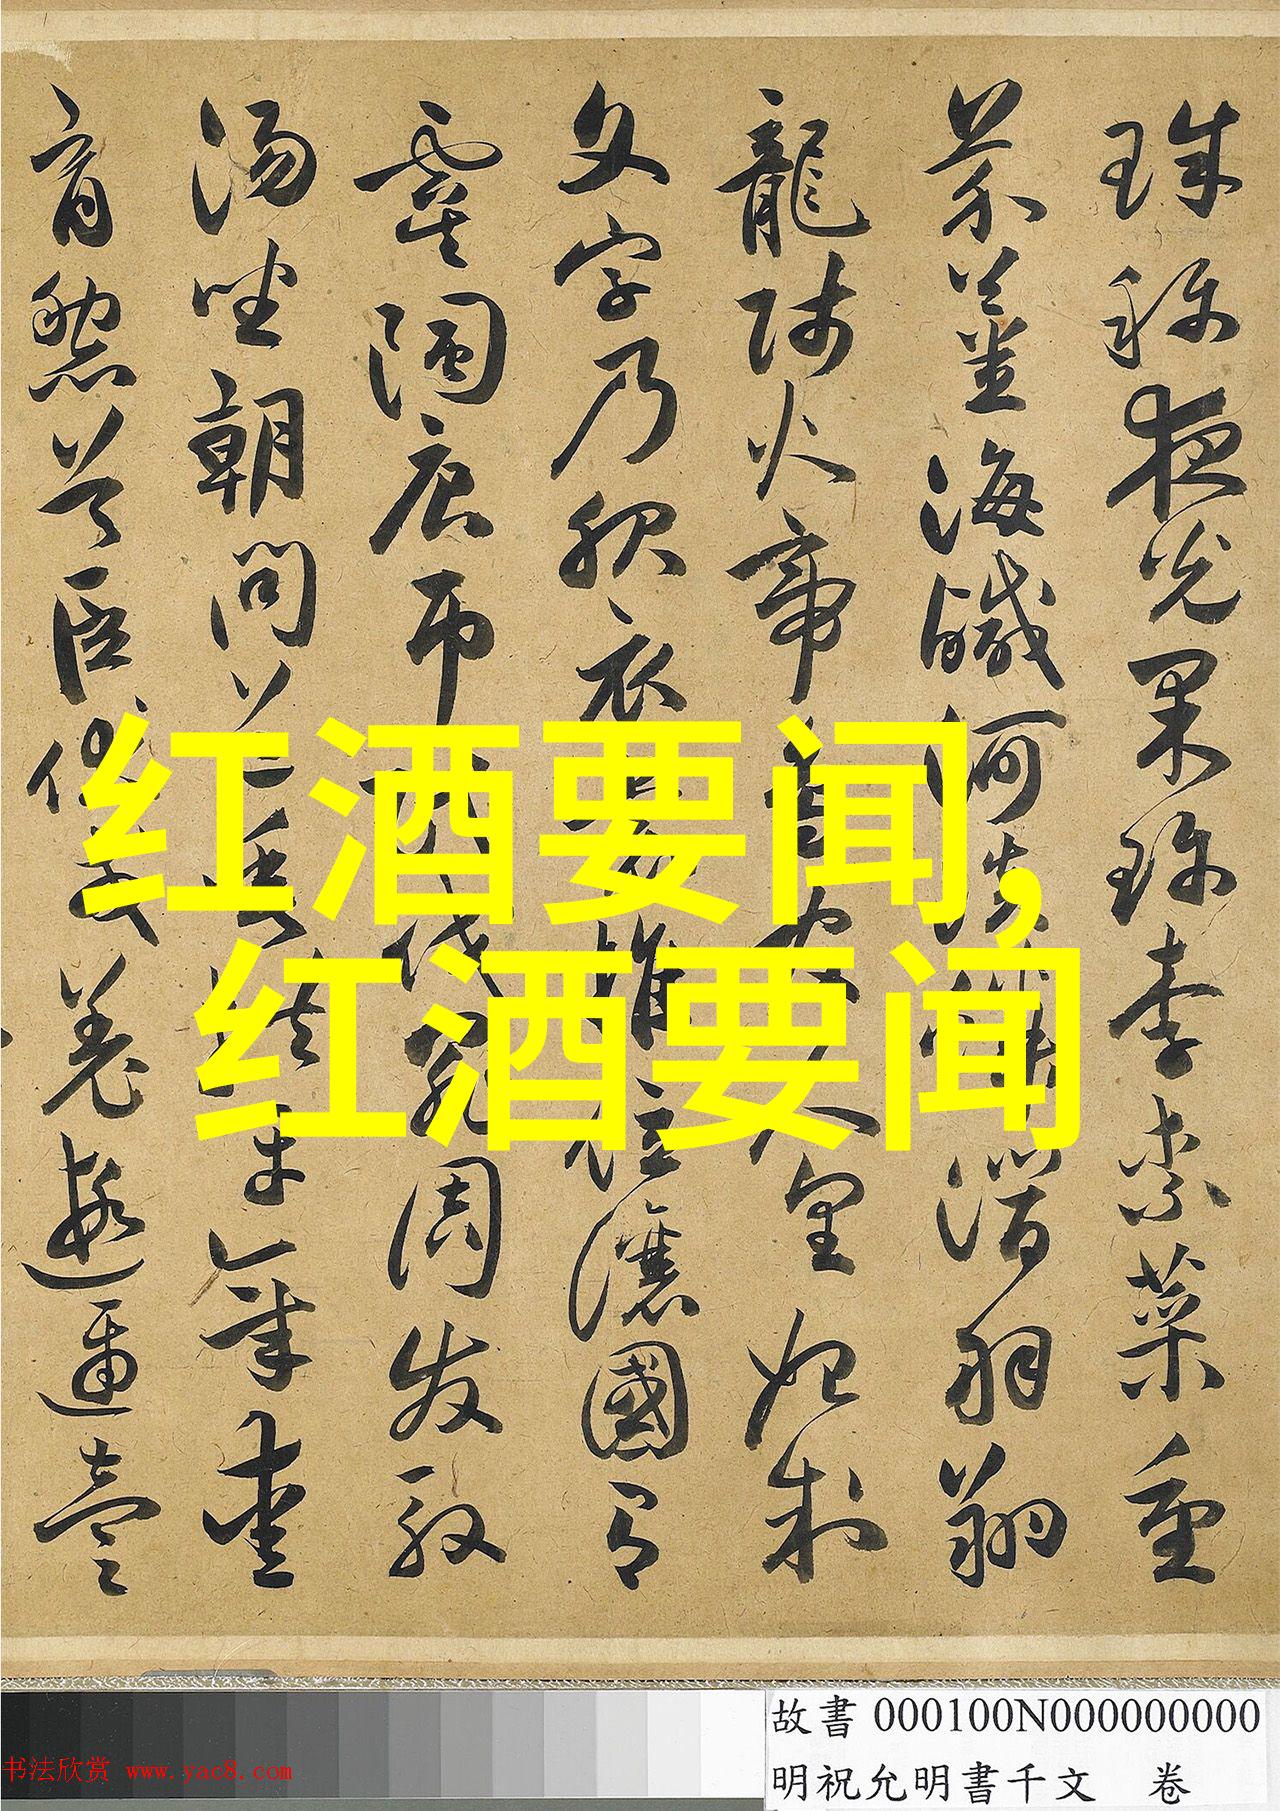 珠稱夜光果珍李柰菜重
芥薑海鹹河淡鱗潛羽翔
龍師火帝鳥官人皇始制
文字乃服衣裳推位讓國有
虞陶唐弔民伐罪周發殷
湯坐朝問道垂拱平章愛
育黎首臣伏戎羌遐邇壹
红酒要闻,
红酒要闻
故書 000100N000000000
明祝允明書千文 卷
书法欣赏 www.yac8.com